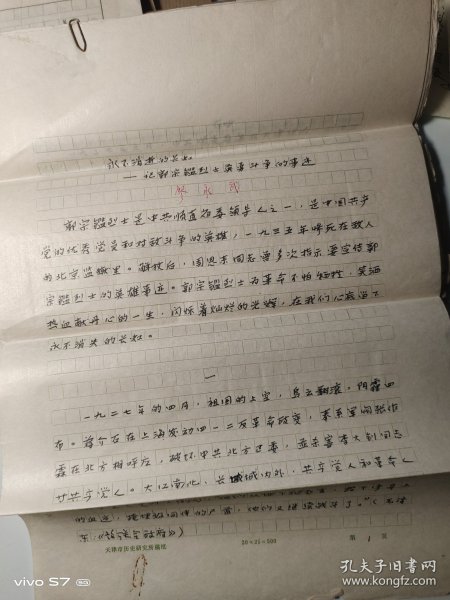 永不消逝的长虹
——记郭宗鑑烈士英勇斗争的事迹
廖永武
郭宗鑑烈士是中共顺直省委领导人之一，是中国共产
党的优秀党员和对敌斗争的英雄，一九三五年惨死在敌人
的北京监狱里。解放后，周恩来同志曾多次指示要宣传郭
宗鑑烈士的英雄事迹。郭宗鑑烈士为革命不怕牺牲，英洒
热血献丹心的一生，闪烁着灿烂的光辉，在我们心底留下
永不消失的长虹。
一
一九二七年的四月，祖国的上空，乌云翻滚，阴霾四
布。蒋介石在上海发动四一二反革命政变，奉系军阀张作
霖在北方相呼应，破坏中共北方区委，盗杀害李大钊同志
廿共产党人。大江南北，长城内外，共产党人和革命人
的血迹，掩埋好同伴的尸首，他们又继续战斗了。"（毛泽
东：《论联合政府》）
天津市历史研究所稿纸
20×25=500
第 1 页
vivo S7 5G
孔夫子旧书网